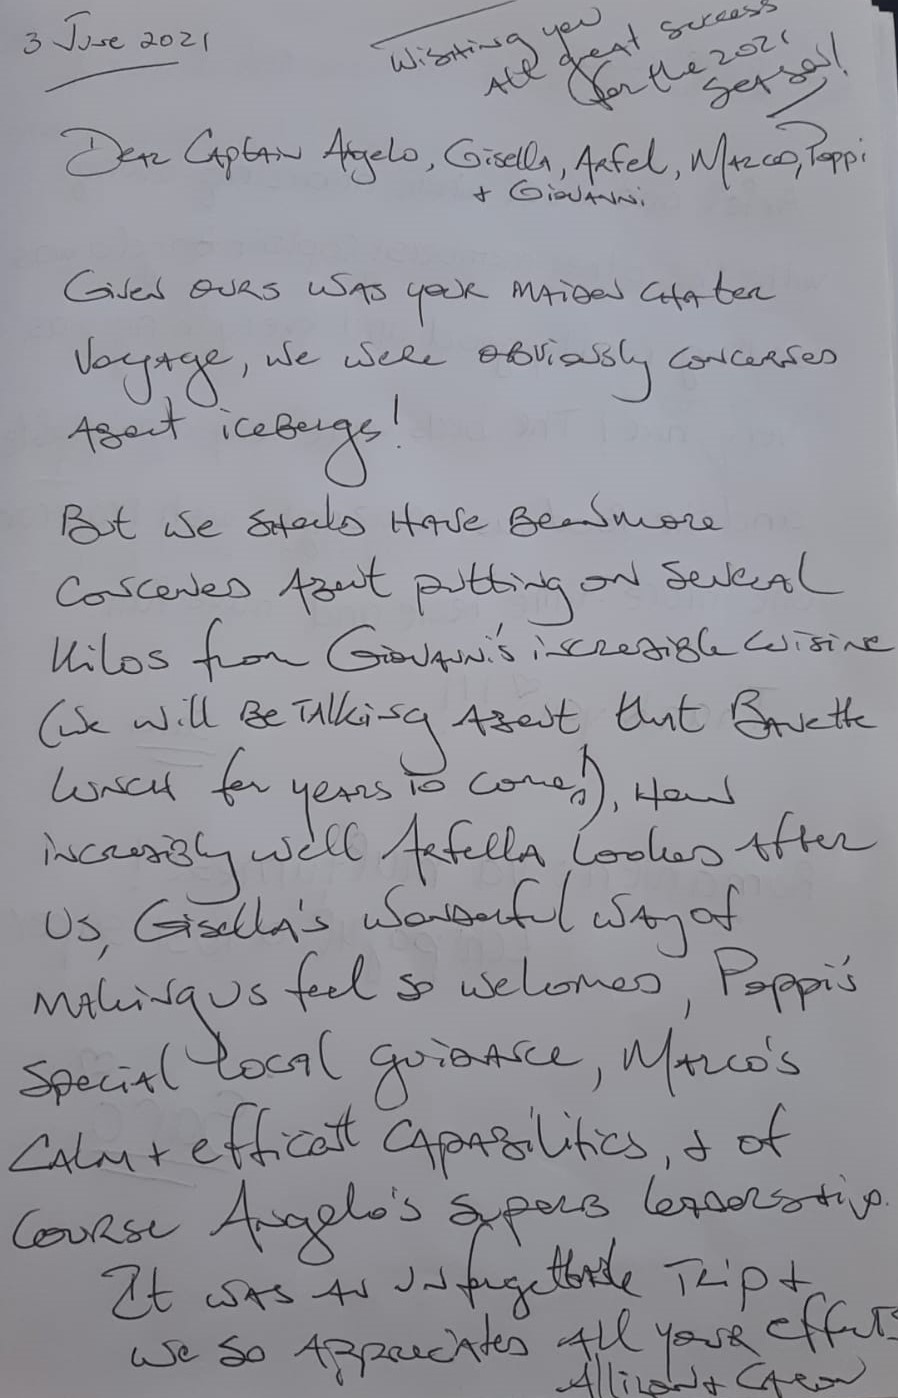 3 June 2021
Wishing you
All great success
for the 2021
Season!
Dear Captain Angelo, Gisella, Arfel, Marco, Poppi
+ Giovanni
Given ours was your maiden charter
Voyage, we were obviously concerned
About icebergs!
But we should have been more
Concerned About putting on several
Kilos from Giovanni's incredible cuisine
(we will be talking about that Bavette
Lunch for years to come!), How
incredibly well Arfella looked after
us, Gisella's wonderful way of
making us feel so welcomed, Poppi's
Special local guidance, Marco's
Calm + efficient capabilities, + of
course Angelo's superb leadership.
It was an unforgettable Trip +
we so appreciated all your efforts